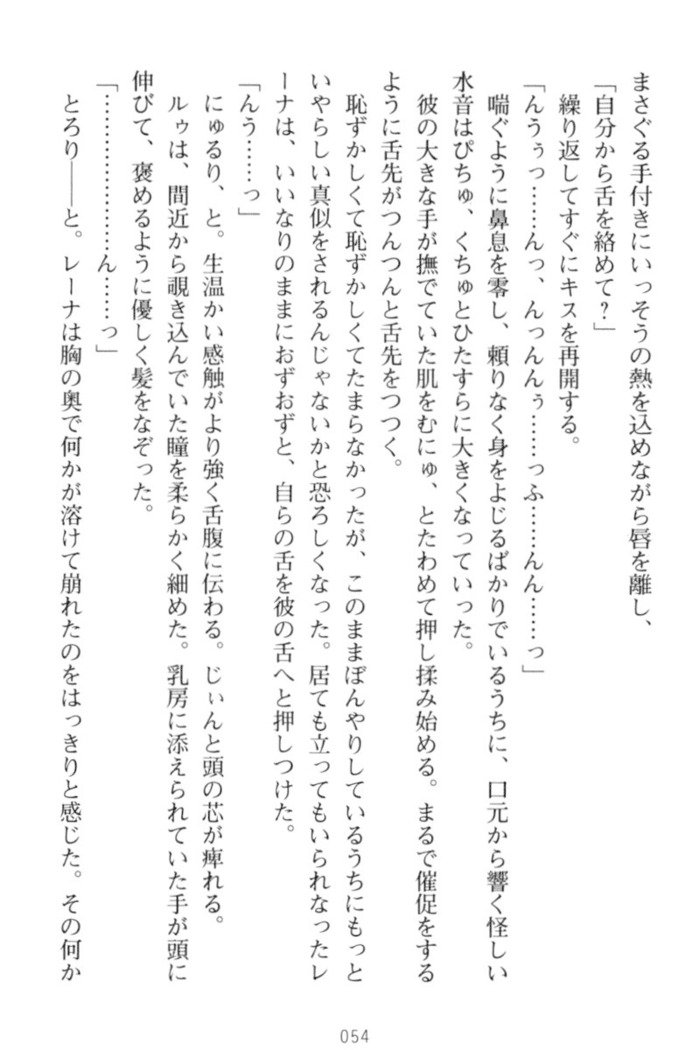 まさぐる手付きにいっそうの熱を込めながら唇を離し、
「自分から舌を絡めて？」
繰り返してすぐにキスを再開する。
「んうぅっ……んっ、んっんんぅ……っふ……んん……っ」
喘ぐように鼻息を零し、頼りなく身をよじるばかりでいるうちに、口元から響く怪しい
水音はぴちゅ、くちゅとひたすらに大きくなっていった。
彼の大きな手が撫でていた肌をむにゅ、とたわめて押し揉み始める。まるで催促をする
ように舌先がつんつんと舌先をつつく。
恥ずかしくて恥ずかしくてたまらなかったが、このままぼんやりしているうちにもっと
いやらしい真似をされるんじゃないかと恐ろしくなった。居ても立ってもいられなったレ
ーナは、いいなりのままにおずおずと、自らの舌を彼の舌へと押しつけた。
「んう……っ」
にゅるり、と。生温かい感触がより強く舌腹に伝わる。じぃんと頭の芯が痺れる。
ルゥは、間近から覗き込んでいた瞳を柔らかく細めた。乳房に添えられていた手が頭に
伸びて、褒めるように優しく髪をなぞった。
「………………ん……っ」
とろり――と。レーナは胸の奥で何かが溶けて崩れたのをはっきりと感じた。その何か
054